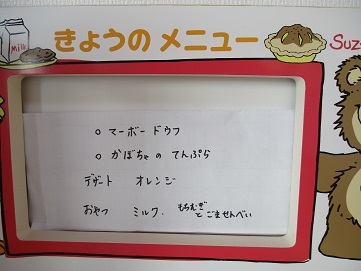 Milk
きょうの メニュー
Suz
○ マーボー ドウフ
○ かぼちゃ の てんぷら
デザート オレンジ
おやつ ミルク. もちむぎ
とごませんべい